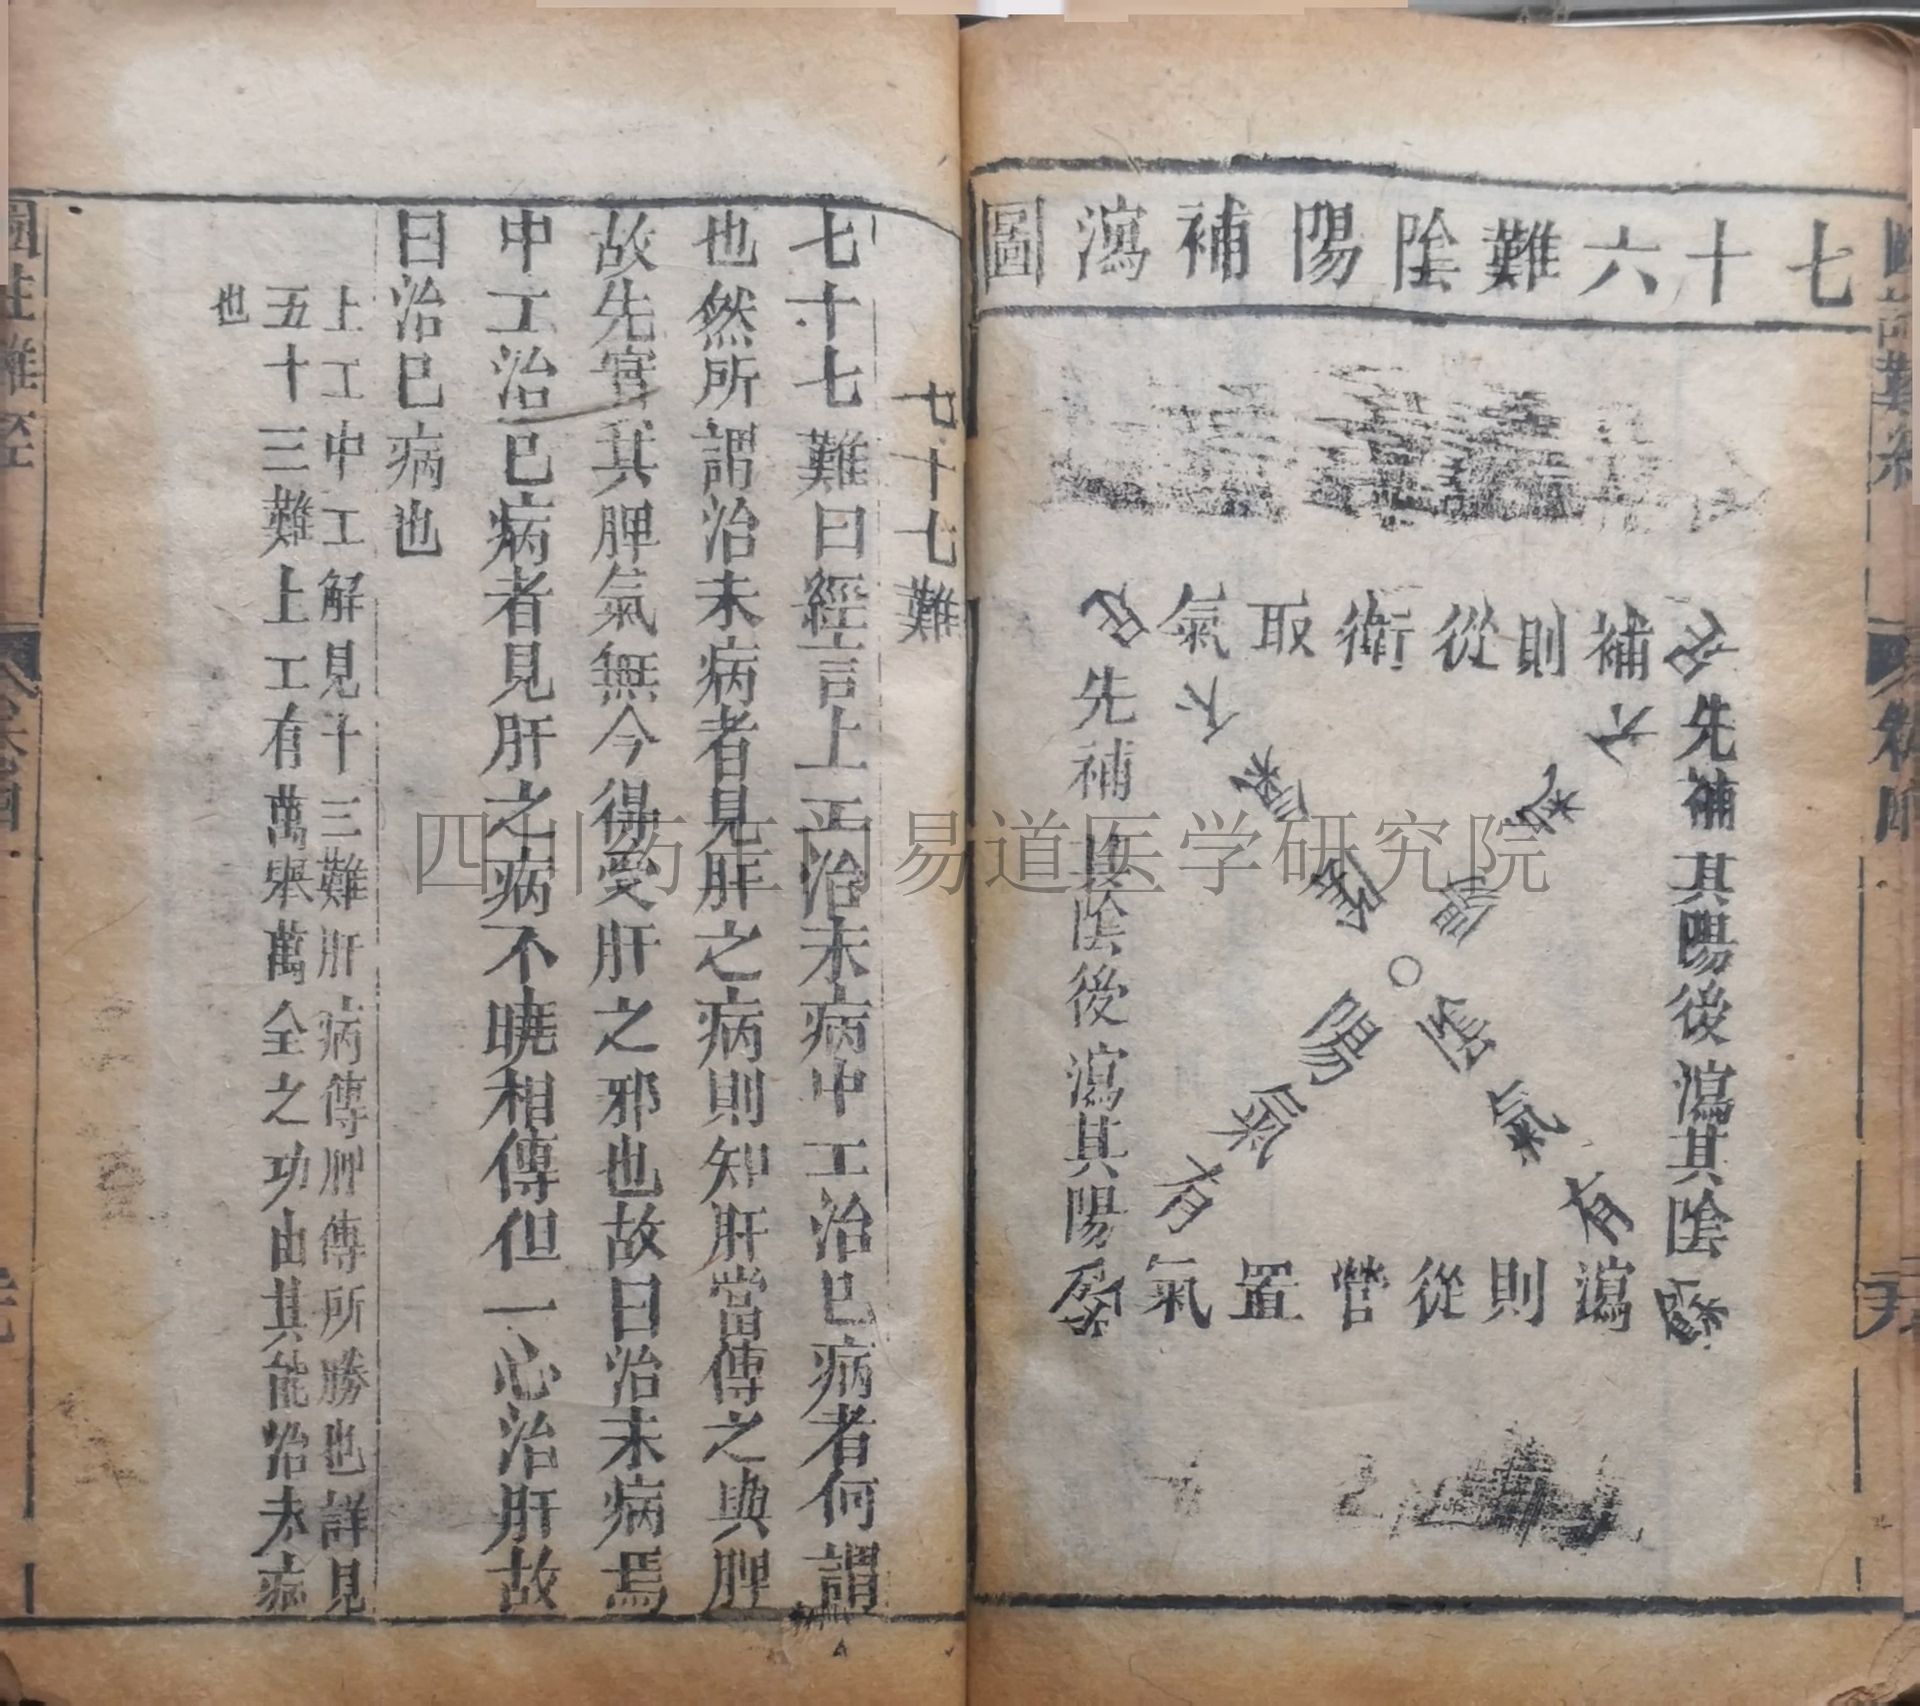 七十六難陰陽補瀉圖
補則從衛取氣
先補其陽後瀉其陰
陽氣不足
陰氣不足
陰氣有餘
陽餘有
先補其陰後瀉其陽
瀉則從營置氣
七十七難
七十七難曰經言上工治未病中工治已病者何謂
也然所謂治未病者見肝之病則知肝當傳之與脾
故先實其脾氣無令得受肝之邪也故曰治未病焉
中工治已病者見肝之病不曉相傳但一心治肝故
曰治已病也
上工中工解見十三難肝病傳脾傳所勝也詳見
五十三難上工有萬舉萬全之功由其能治未病
也
圖註難經
四川药王尚易道医学研究院